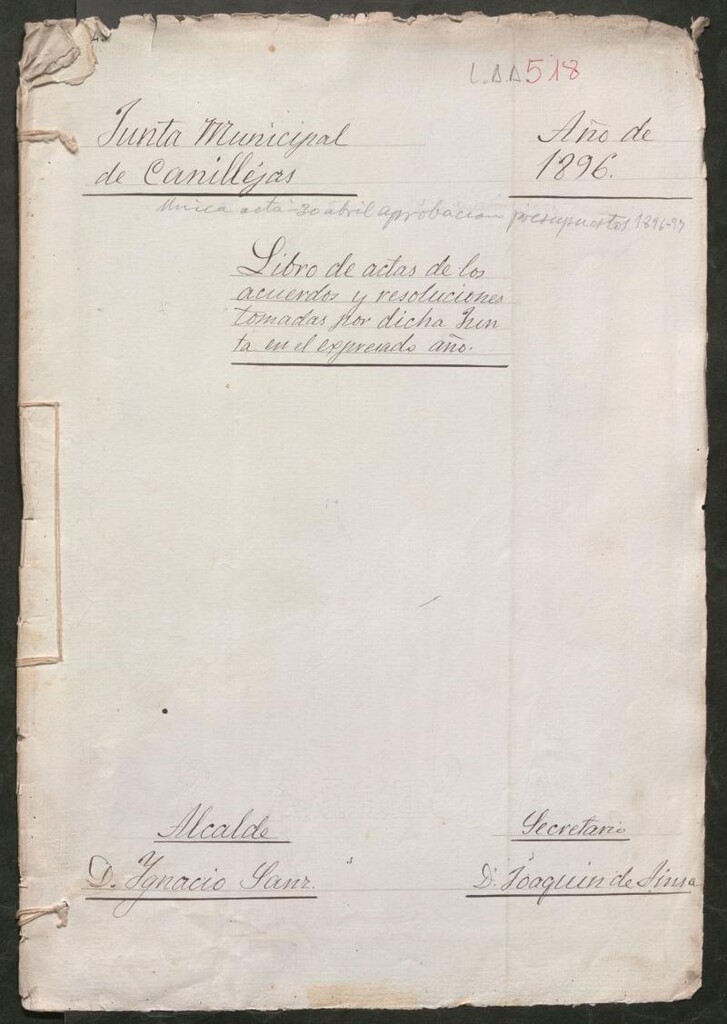 L.A.A 518
Junta Municipal
de Canillejas
Año de
1896.
Unica acta 30 abril aprobacion presupuestos 1896-97
Libro de actas de los
acuerdos y resoluciones
tomadas por dicha Jun
ta en el expresado año.
Alcalde
D. Ygnacio Sanz.
Secretario
D. Joaquin de